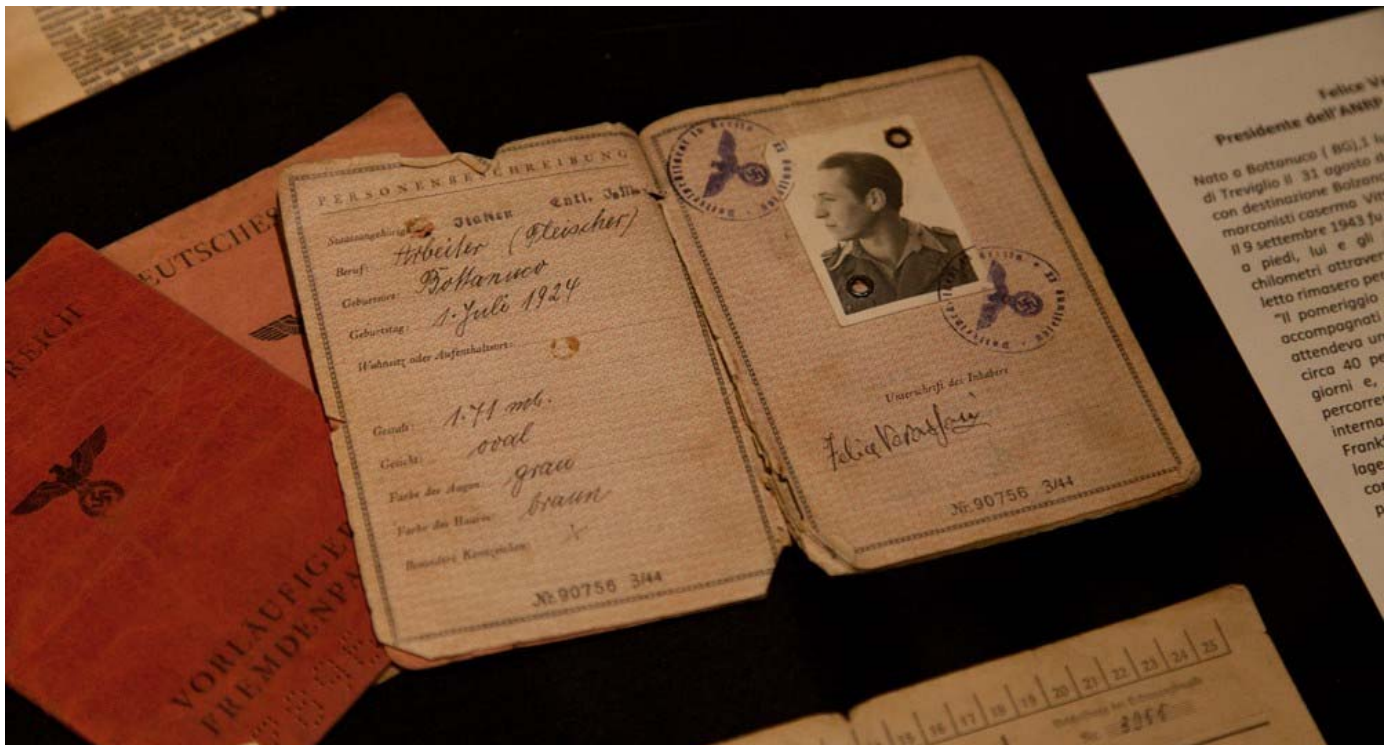 REICH
VORLÄUFIGER
FREMDENPA
EUTSCHES
PERSONENBESCHREIBUNG
Staatsangehörig Italien
Beruf: Arbeiter (Fleischer)
Geburtsort: Bottanuco
Geburtstag: 1. Juli 1924
Wohnsitz oder Aufenthaltsort:
Gestalt: 1.71
Gesicht: oval
Farbe der Augen: grau
Farbe des Haares: braun
Besondere Kennzeichen:
Nr. 90756 3/44
Polizeipräsident in Berlin
Unterschrift des Inhabers
Felice
Nr. 90756 3/44
Felice
Presidente dell'ANRP
Nato a Bottanuco (BG), 1
di Treviglio il 31 agosto
con destinazione
marconisti caserma
Il 9 settembre 1943 fu
a piedi, lui e gli
chilometri
letto rimasero per
"Il pomeriggio
accompagnati
attendeva un
circa 40
giorni e,
interna
lage
15 16 17 18 19 20 21 22 23 24 25
Nr. 3966